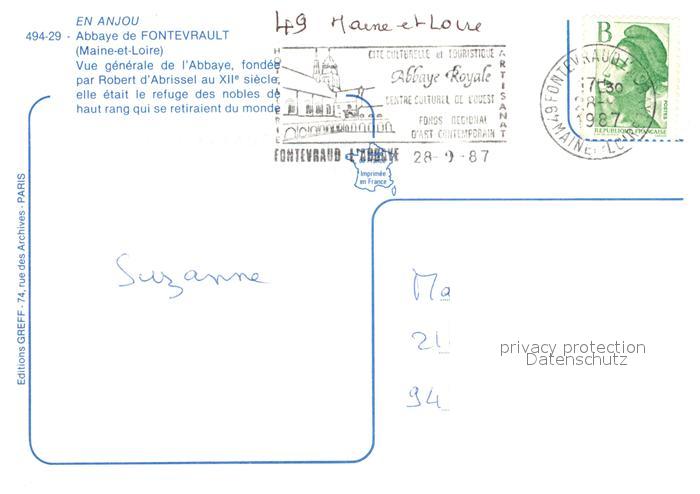 49 Maine-et-Loire
EN ANJOU
494-29 - Abbaye de FONTEVRAULT
(Maine-et-Loire)
Vue générale de l'Abbaye, fondée
par Robert d'Abrissel au XIIe siècle,
elle était le refuge des nobles de
haut rang qui se retiraient du monde
HOTELLERIE
CITE CULTURELLE et TOURISTIQUE
Abbaye Royale
CENTRE CULTUREL DE L'OUEST
FONDS REGIONAL
D'ART CONTEMPORAIN
ARTISANAT
FONTEVRAUD L'ABBAYE
28-9-87
Imprimée
en France
49 FONTEVRAUD
17H30
28-9
1987
MAINE-ET-LOIRE
B
POSTES
REPUBLIQUE FRANÇAISE
Editions GREFF - 74, rue des Archives - PARIS
Suzanne
Ma
21
94
privacy protection
Datenschutz